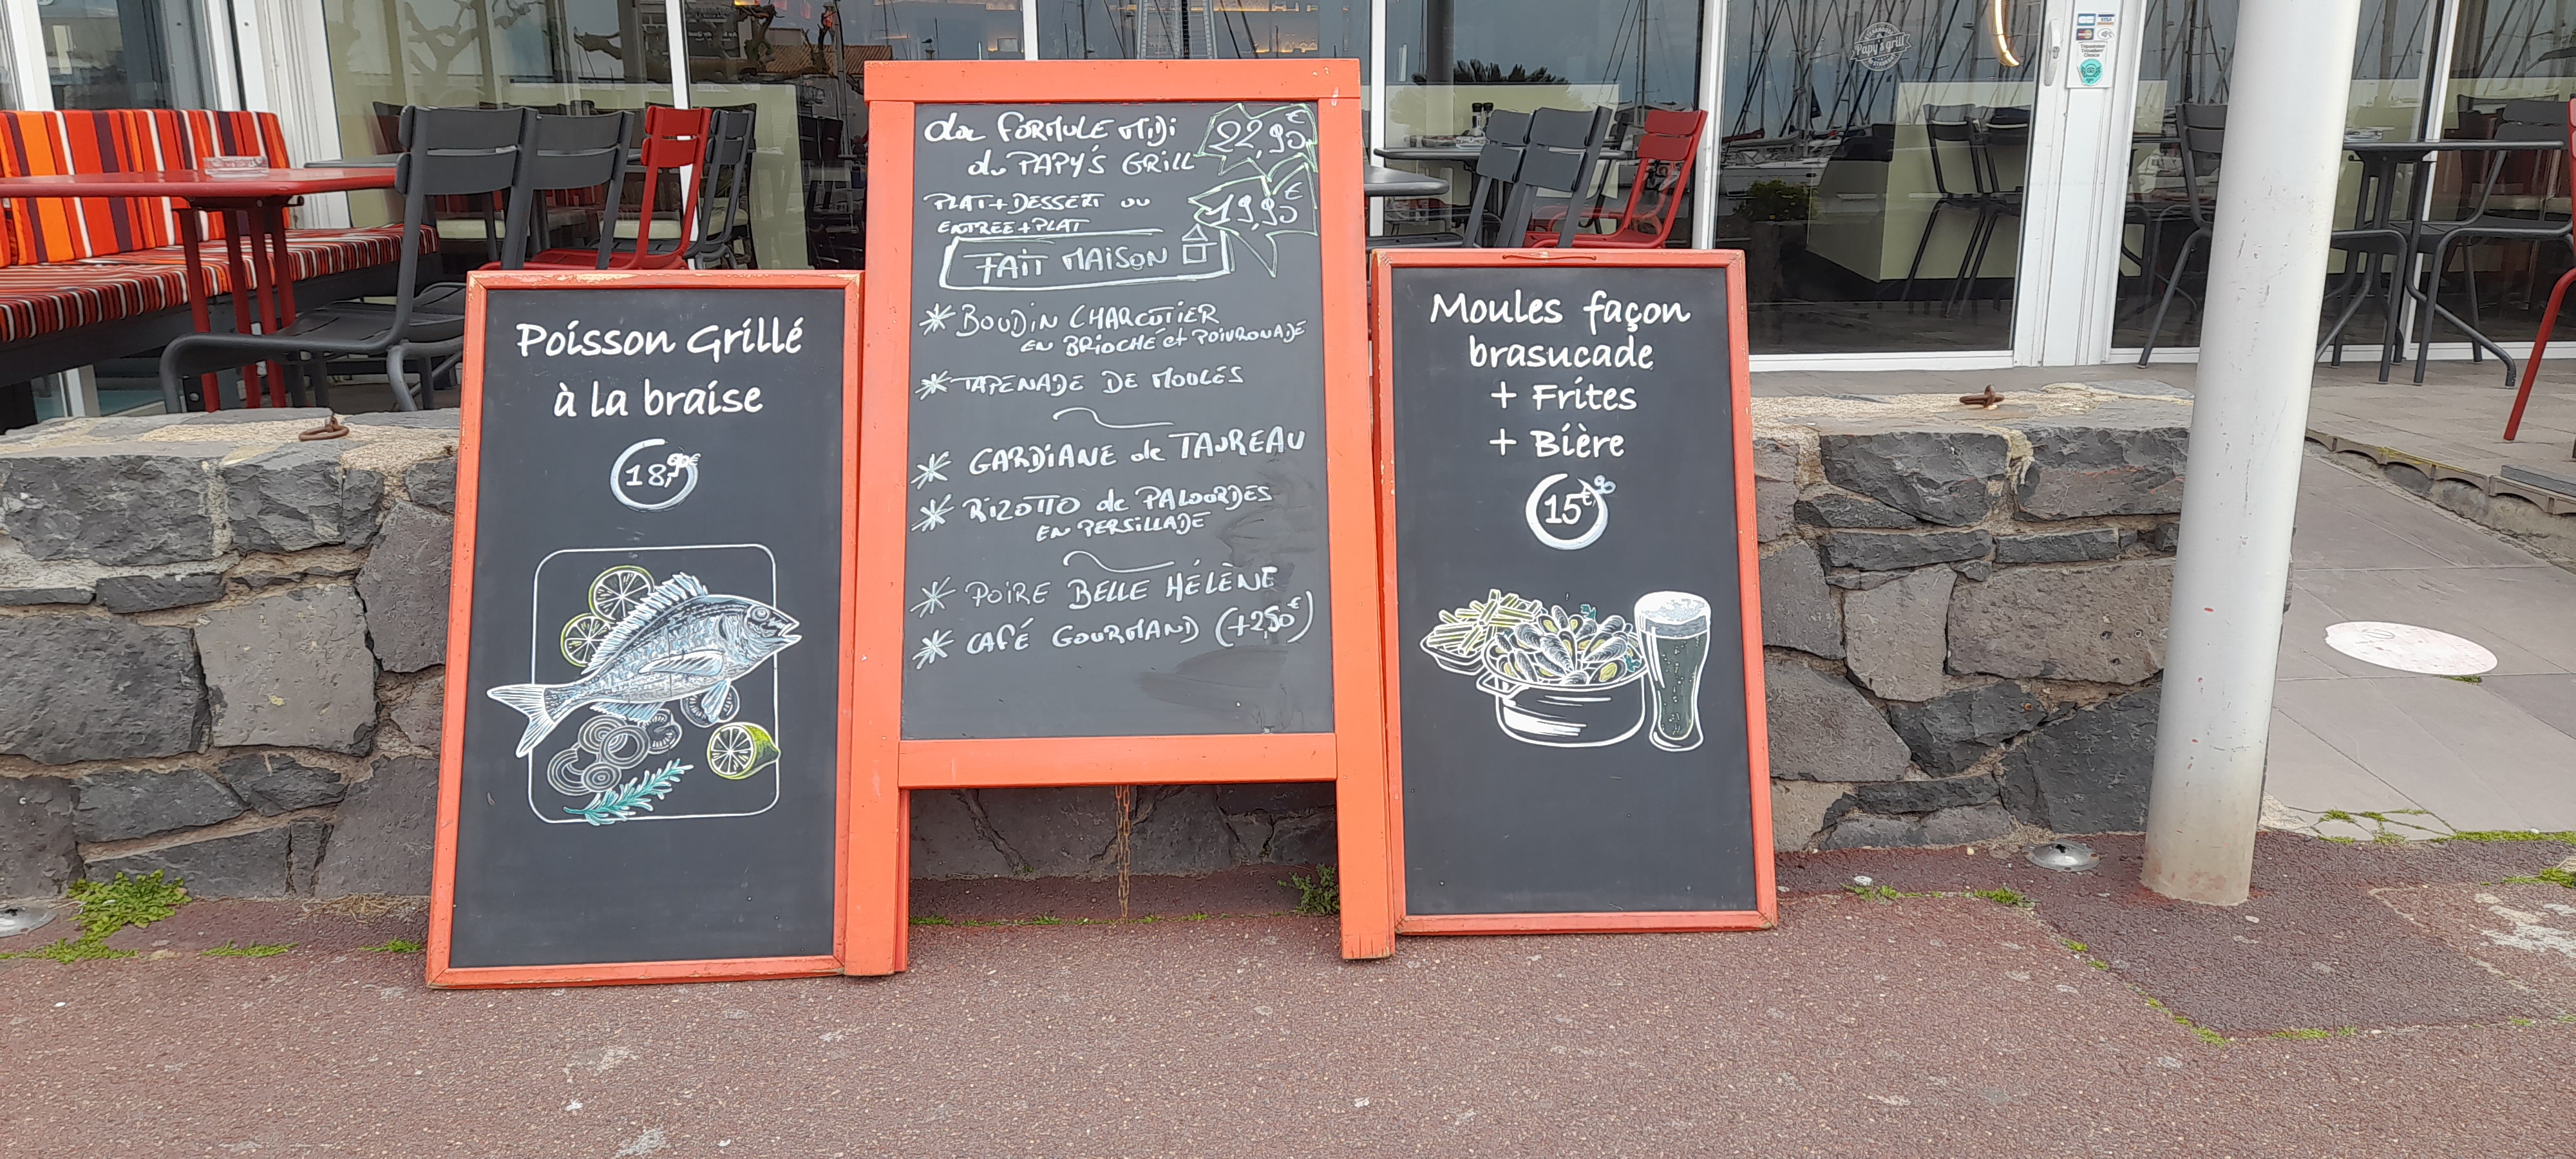 Poisson Grillé
à la braise
18,90€
La FORMULE MiDi 22,90€
du PAPY'S GRILL
PLAT + DESSERT ou 19,90€
ENTREE + PLAT
FAIT MAISON
* BOUDiN CHARCUTiER
EN BRiOCHE et POiVRONADE
* TAPENADE DE MOULES
* GARDiANE de TAUREAU
* RiZOTTO de PALOURDES
EN PERSiLLADE
* POiRE BELLE HÉLÈNE
* CAFÉ GOURMAND (+2,50€)
Moules façon
brasucade
+ Frites
+ Bière
15€90
Papy's grill